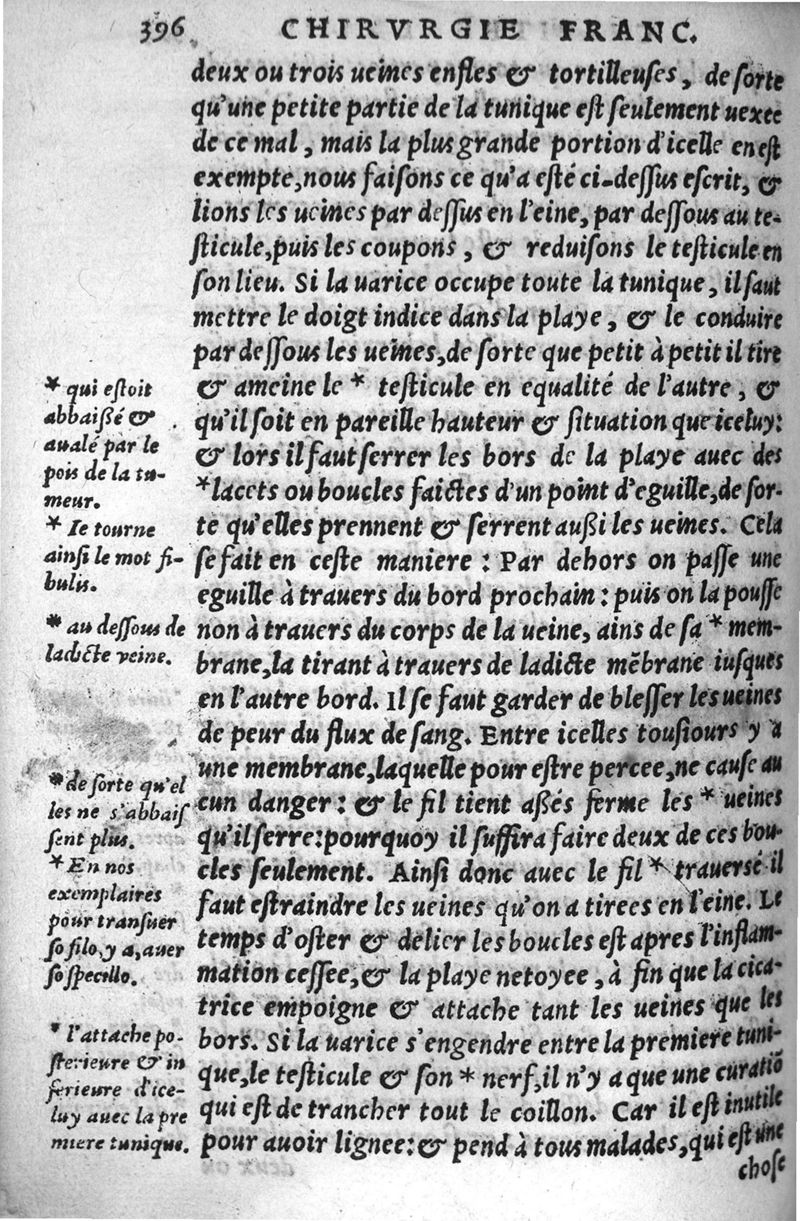 396 CHIRVRGIE FRANC.
deux ou trois ueines enfles & tortilleuses, de sorte
qu'une petite partie de la tunique est seulement uexee
de ce mal, mais la plus grande portion d'icelle en est
exempte, nous faisons ce qu'a esté ci-dessus escrit, &
lions les ueines par dessus en l'eine, par dessous au te-
sticule, puis les coupons, & reduisons le testicule en
son lieu. Si la uarice occupe toute la tunique, il faut
mettre le doigt indice dans la playe, & le conduire
par dessous les ueines, de sorte que petit à petit il tire
& ameine le * testicule en equalité de l'autre, &
qu'il soit en pareille hauteur & situation que iceluy:
& lors il faut serrer les bors de la playe auec des
*lacets ou boucles faictes d'un point d'eguille, de sor-
te qu'elles prennent & serrent außi les ueines. Cela
se fait en ceste maniere : Par dehors on passe une
eguille à trauers du bord prochain : puis on la pousse
non à trauers du corps de la ueine, ains de sa * mem-
brane, la tirant à trauers de ladicte mẽbrane iusques
en l'autre bord. Il se faut garder de blesser les ueines
de peur du flux de sang. Entre icelles tousiours y a
une membrane, laquelle pour estre percee, ne cause au
cun danger : & le fil tient aßés ferme les * ueines
qu'il serre: pourquoy il suffira faire deux de ces bou-
cles seulement. Ainsi donc auec le fil * trauersé il
faut estraindre les ueines qu'on a tirees en l'eine. Le
temps d'oster & délier les boucles est apres l'inflam-
mation cessee, & la playe netoyee, à fin que la cica-
trice empoigne & attache tant les ueines que les
bors. Si la uarice s'engendre entre la premiere tuni-
que, le testicule & son * nerf, il n'y a que une curatiõ
qui est de trancher tout le coillon. Car il est inutile
pour auoir lignee: & pend à tous malades, qui est une
chose
* qui estoit
abbaißé &
aualé par le
pois de la tu-
meur.
* Ie tourne
ainsi le mot fi-
bulis.
* au dessous de
ladicte veine.
*de sorte qu'el
les ne s'abbais
sent plus.
*En nos
exemplaires
pour transuer
so filo, y a, auer
so specillo.
* l'attache po-
sterieure & in
ferieure d'ice-
luy auec la pre
miere tunique.